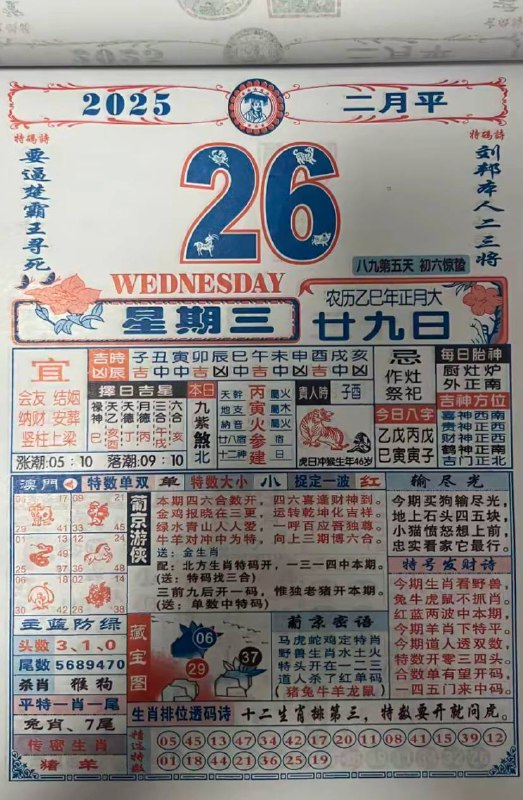 2025
二月平
特碼詩
要逼楚霸王寻死
26
特碼詩
刘邦本人二三将
八九第五天 初六惊蛰
WEDNESDAY
星期三
农历乙巳年正月大
廿九日
宜
会友 结姻
纳财 安葬
竖柱 上梁
涨潮:05:10 落潮:09:10
吉時 子丑寅卯辰巳午未申酉戌亥
擇日吉星
本日
九紫煞北
天幹 丙 屬火
地支 寅 屬木
納音 火 屬火
廿八宿 参
十二神 建
貴人時 子酉
虎日冲猴生年46岁
忌
作灶
祭祀
今日八字
乙戊丙戊
巳寅寅子
每日胎神
厨灶炉
外正南
吉神方位
喜神西南
财神西南
贵神正西
鹤神正南
吉门正北
澳門
特数单双 单
特数大小 小
捉定一波 红
葡京游侠
本期四六合数开,四六喜逢财神到。
金鸡报晓在三更,运转乾坤化吉祥。
绿水青山人人爱,一呼百应吾独尊。
牛羊对冲中为特,向上三期博六合。
送:金生肖
配:北方生肖特码开,一三一四中本期。
(送:特码找三合)
三前九后开一码,惟独老猪开本期。
(送:单数中特码)
输尽光
今期买狗输尽光,
地上石头四五块,
小猫愤怒想上前,
忠实看家它最行。
特号发财诗
今期生肖看野兽
兔牛虎鼠不抓肖。
红蓝两波中本期
今期羊肖下特平。
今期道人透双数,
特数开零三四头。
合数单有望开码,
一四五门来中码。
主蓝防绿
头数 3、1、0
尾数 5689470
杀肖 猴狗
平特一肖一尾
兔肖、7尾
传密生肖
猪 羊
藏宝图
06
29
37
葡京密语
马虎蛇鸡定特肖
野兽生肖水土火
特头开在一二三
道人杀了红单码
(猪兔牛羊龙鼠)
生肖排位透码诗 十二生肖排第三,特数要开就问虎。
精选特数
05 45 13 47 34 42 17 20 11 08 41 15 39 12
01 18 44 21 36 25 19